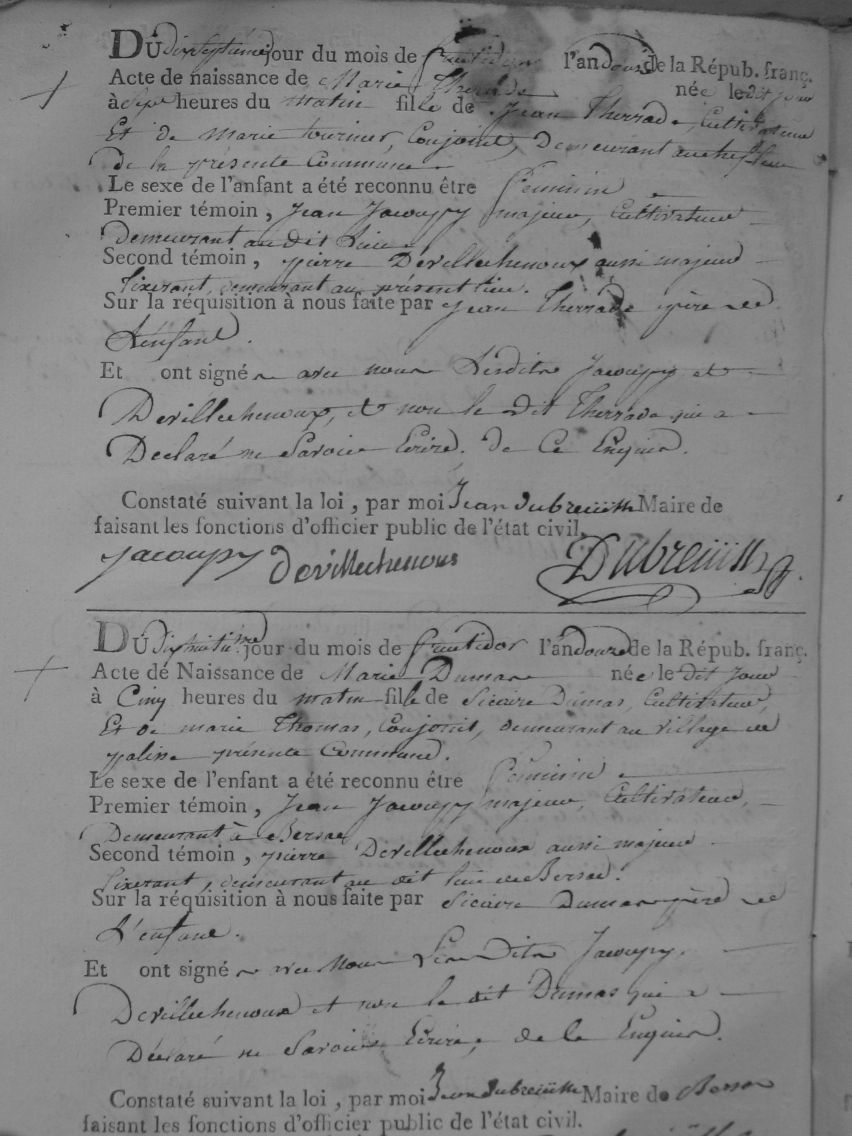 DU dixseptieme jour du mois de fructidor l'an douze de la Répub. franç.
Acte de naissance de Marie Therrade née le dit jour
à Sept heures du matin fille de Jean Therrade, Cultivateur
Et de marie tournier, Conjoint, Demeurant au chef lieu
De la présente Commune
Le sexe de l'anfant a été reconnu être féminin
Premier témoin, Jean Jacoupy majeur, Cultivateur
Demeurant au dit Lieu.
Second témoin, pierre Devillechenoux aussi majeur
tixerant, demeurant au présent lieu.
Sur la réquisition à nous faite par Jean Therrade père de
L'enfant.
Et ont signé avec nous Lesdits Jacoupy et
Devillechenoux, et non le dit Therrade qui a
Declaré ne Savoir Ecrire. de Ce Enquis.
Constaté suivant la loi, par moi Jean dubreuilh Maire de
faisant les fonctions d'officier public de l'état civil.
Jacoupy Devillechenous Dubreüilh
DU dixhuitieme jour du mois de fructidor l'an douze de la Répub. franç.
Acte de Naissance de Marie Dumas née le dit jour
à Cinq heures du matin fille de Sicaire Dumas, Cultivateur,
Et de marie Thomas, Conjoint, demeurant au village de
présente Commune.
Le sexe de l'enfant a été reconnu être féminin
Premier témoin, Jean Jacoupy majeur, Cultivateur,
Demeurant à Bersac
Second témoin, pierre Devillechenoux aussi majeur
tixerant, demeurant au dit lieu de Bersac.
Sur la réquisition à nous faite par Sicaire Dumas père de
L'enfant.
Et ont signé avec Nous Lesdits Jacoupy,
Devillechenoux et non le dit Dumas qui a
Déclaré ne Savoir Ecrire, de ce Enquis.
Constaté suivant la loi, par moi Jean dubreuilh Maire de
faisant les fonctions d'officier public de l'état civil.